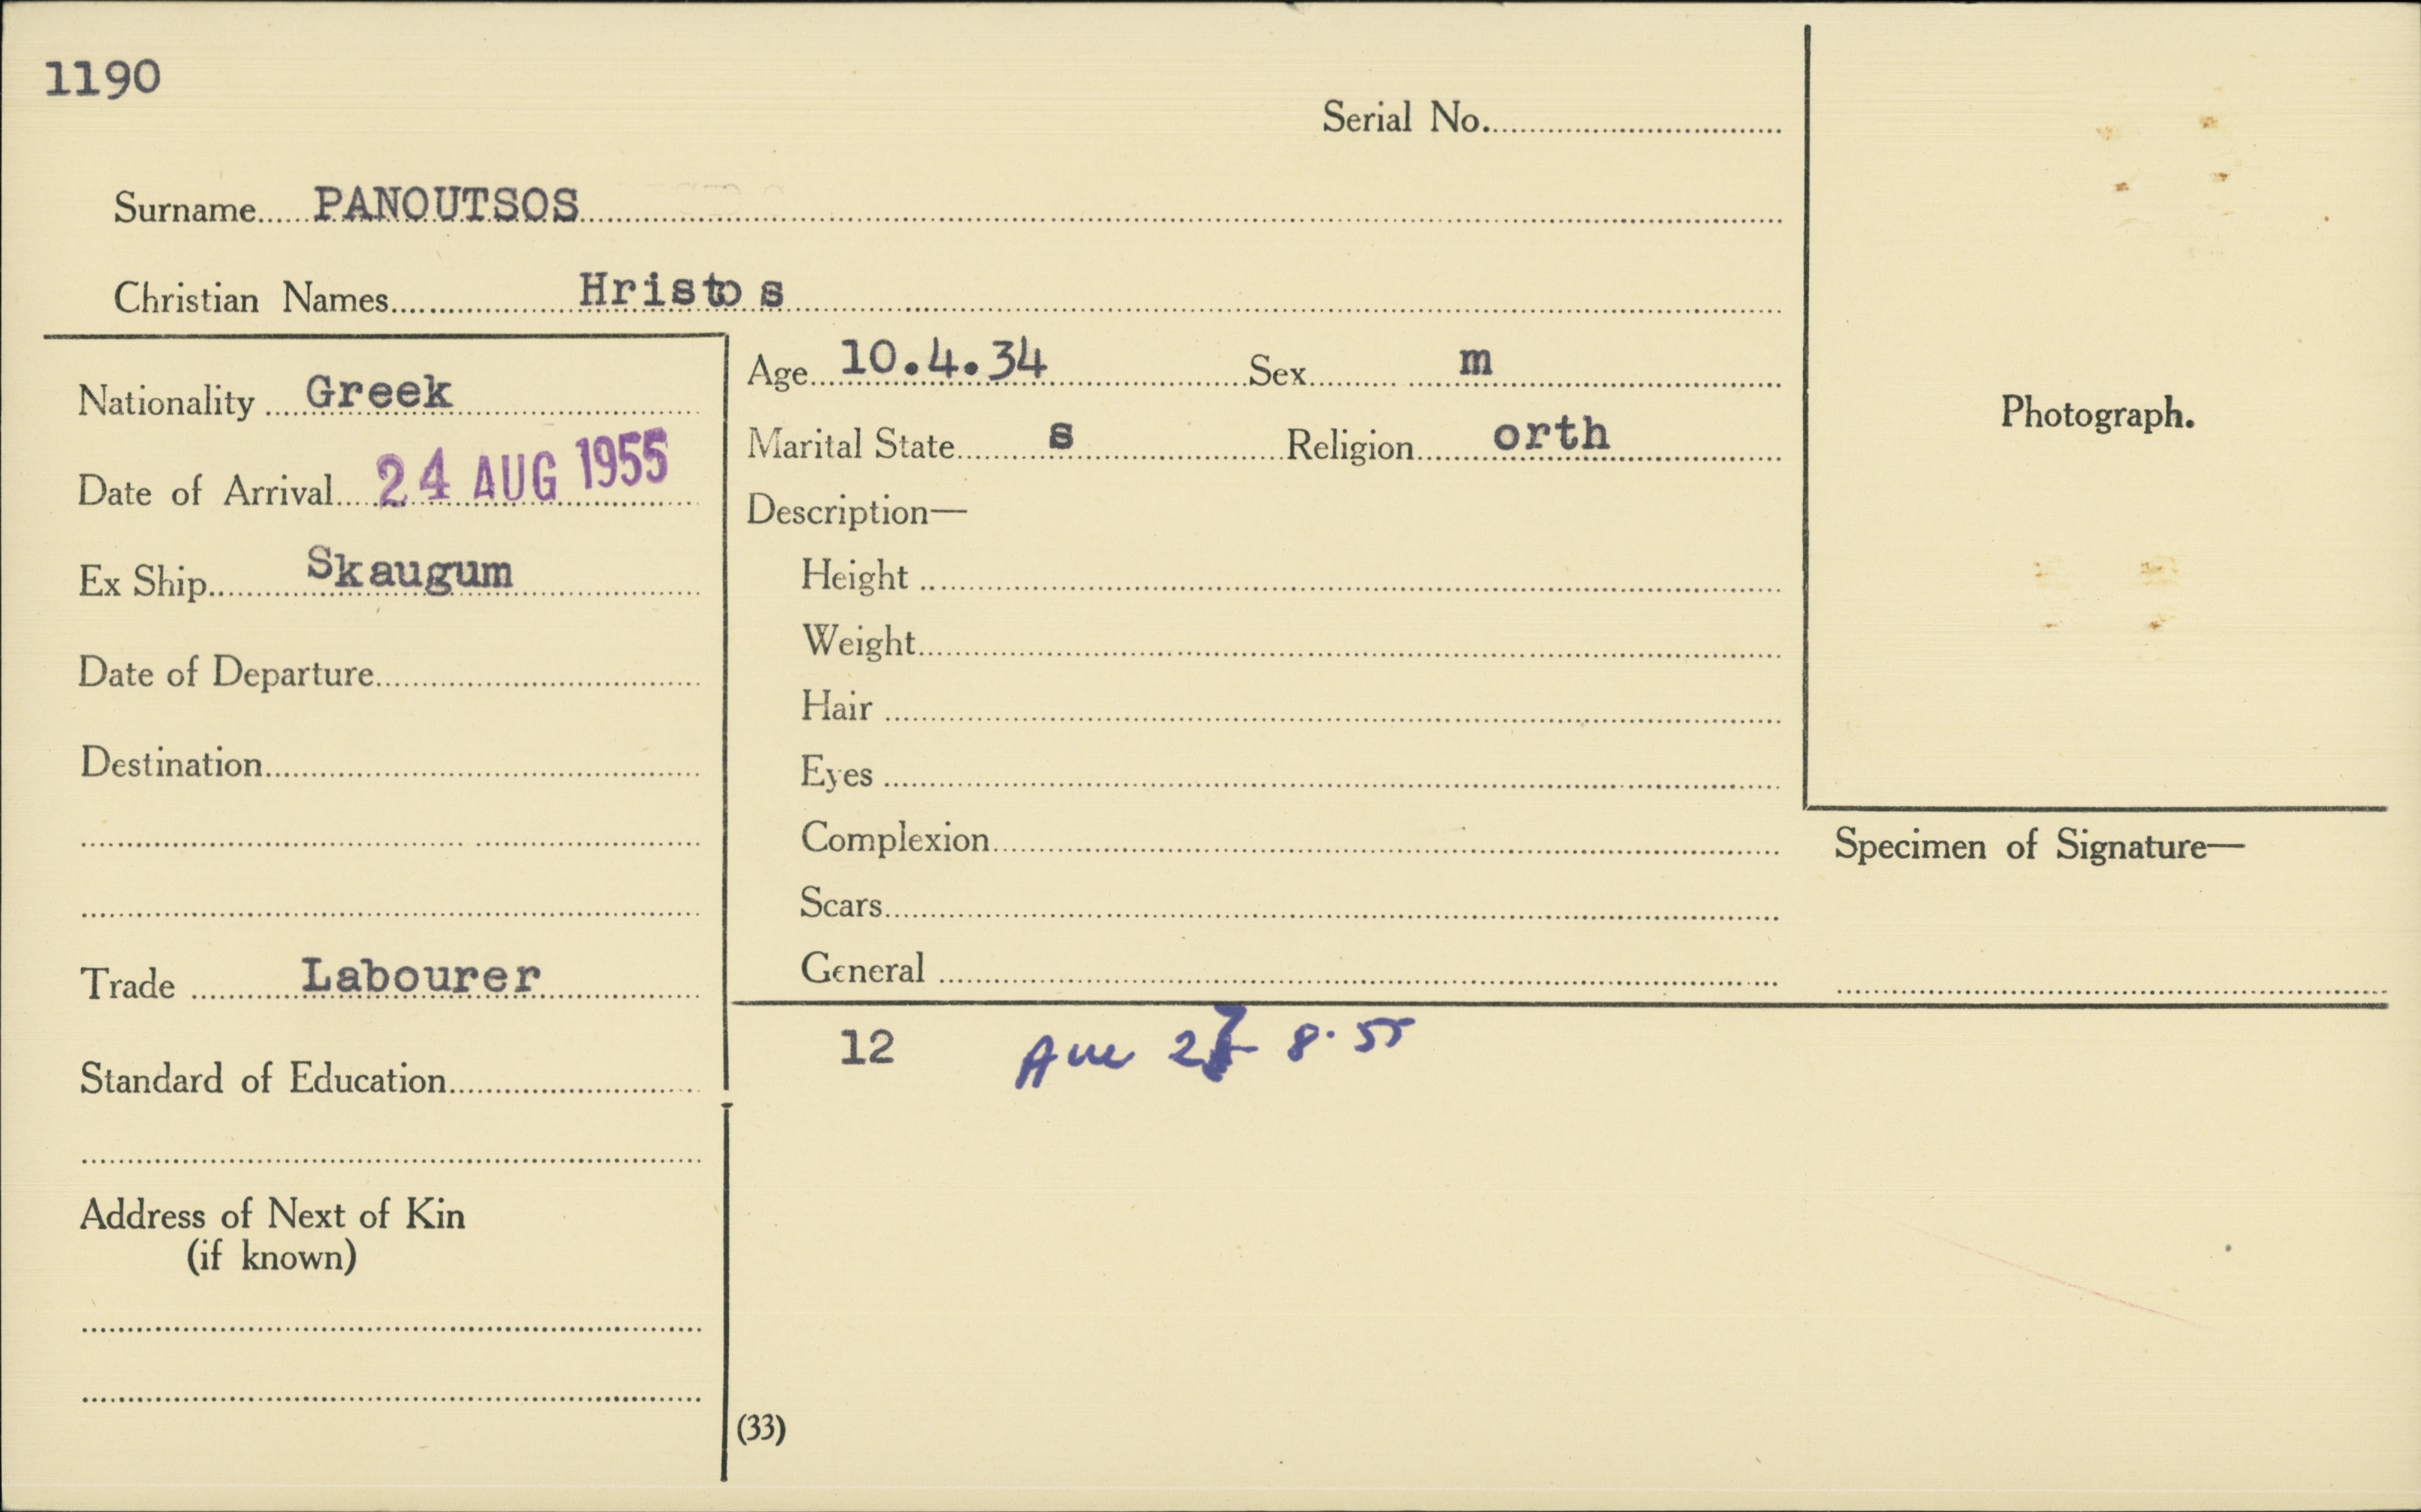 1190
Serial No.
Surname PANOUTSOS
Christian Names Hristos
Nationality Greek
Date of Arrival 24 AUG 1955
Ex Ship Skaugum
Date of Departure
Destination
Trade Labourer
Standard of Education
Address of Next of Kin
(if known)
Age 10.4.34 Sex m
Marital State s Religion orth
Description—
Height
Weight
Hair
Eyes
Complexion
Scars
General
12 8.55
(33)
Photograph.
Specimen of Signature—